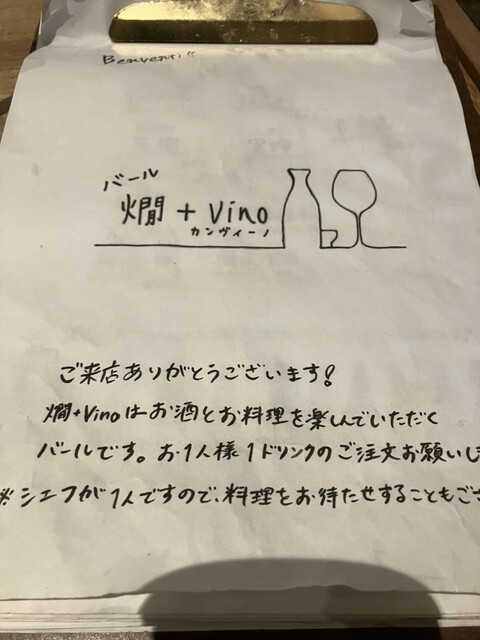 Benvenuti!!
バール
燗 + Vino
カンヴィーノ
ご来店ありがとうございます!
燗+Vinoはお酒とお料理を楽しんでいただく
バールです。お1人様1ドリンクのご注文お願いし
※シェフが1人ですので、料理をお待たせすることもござ